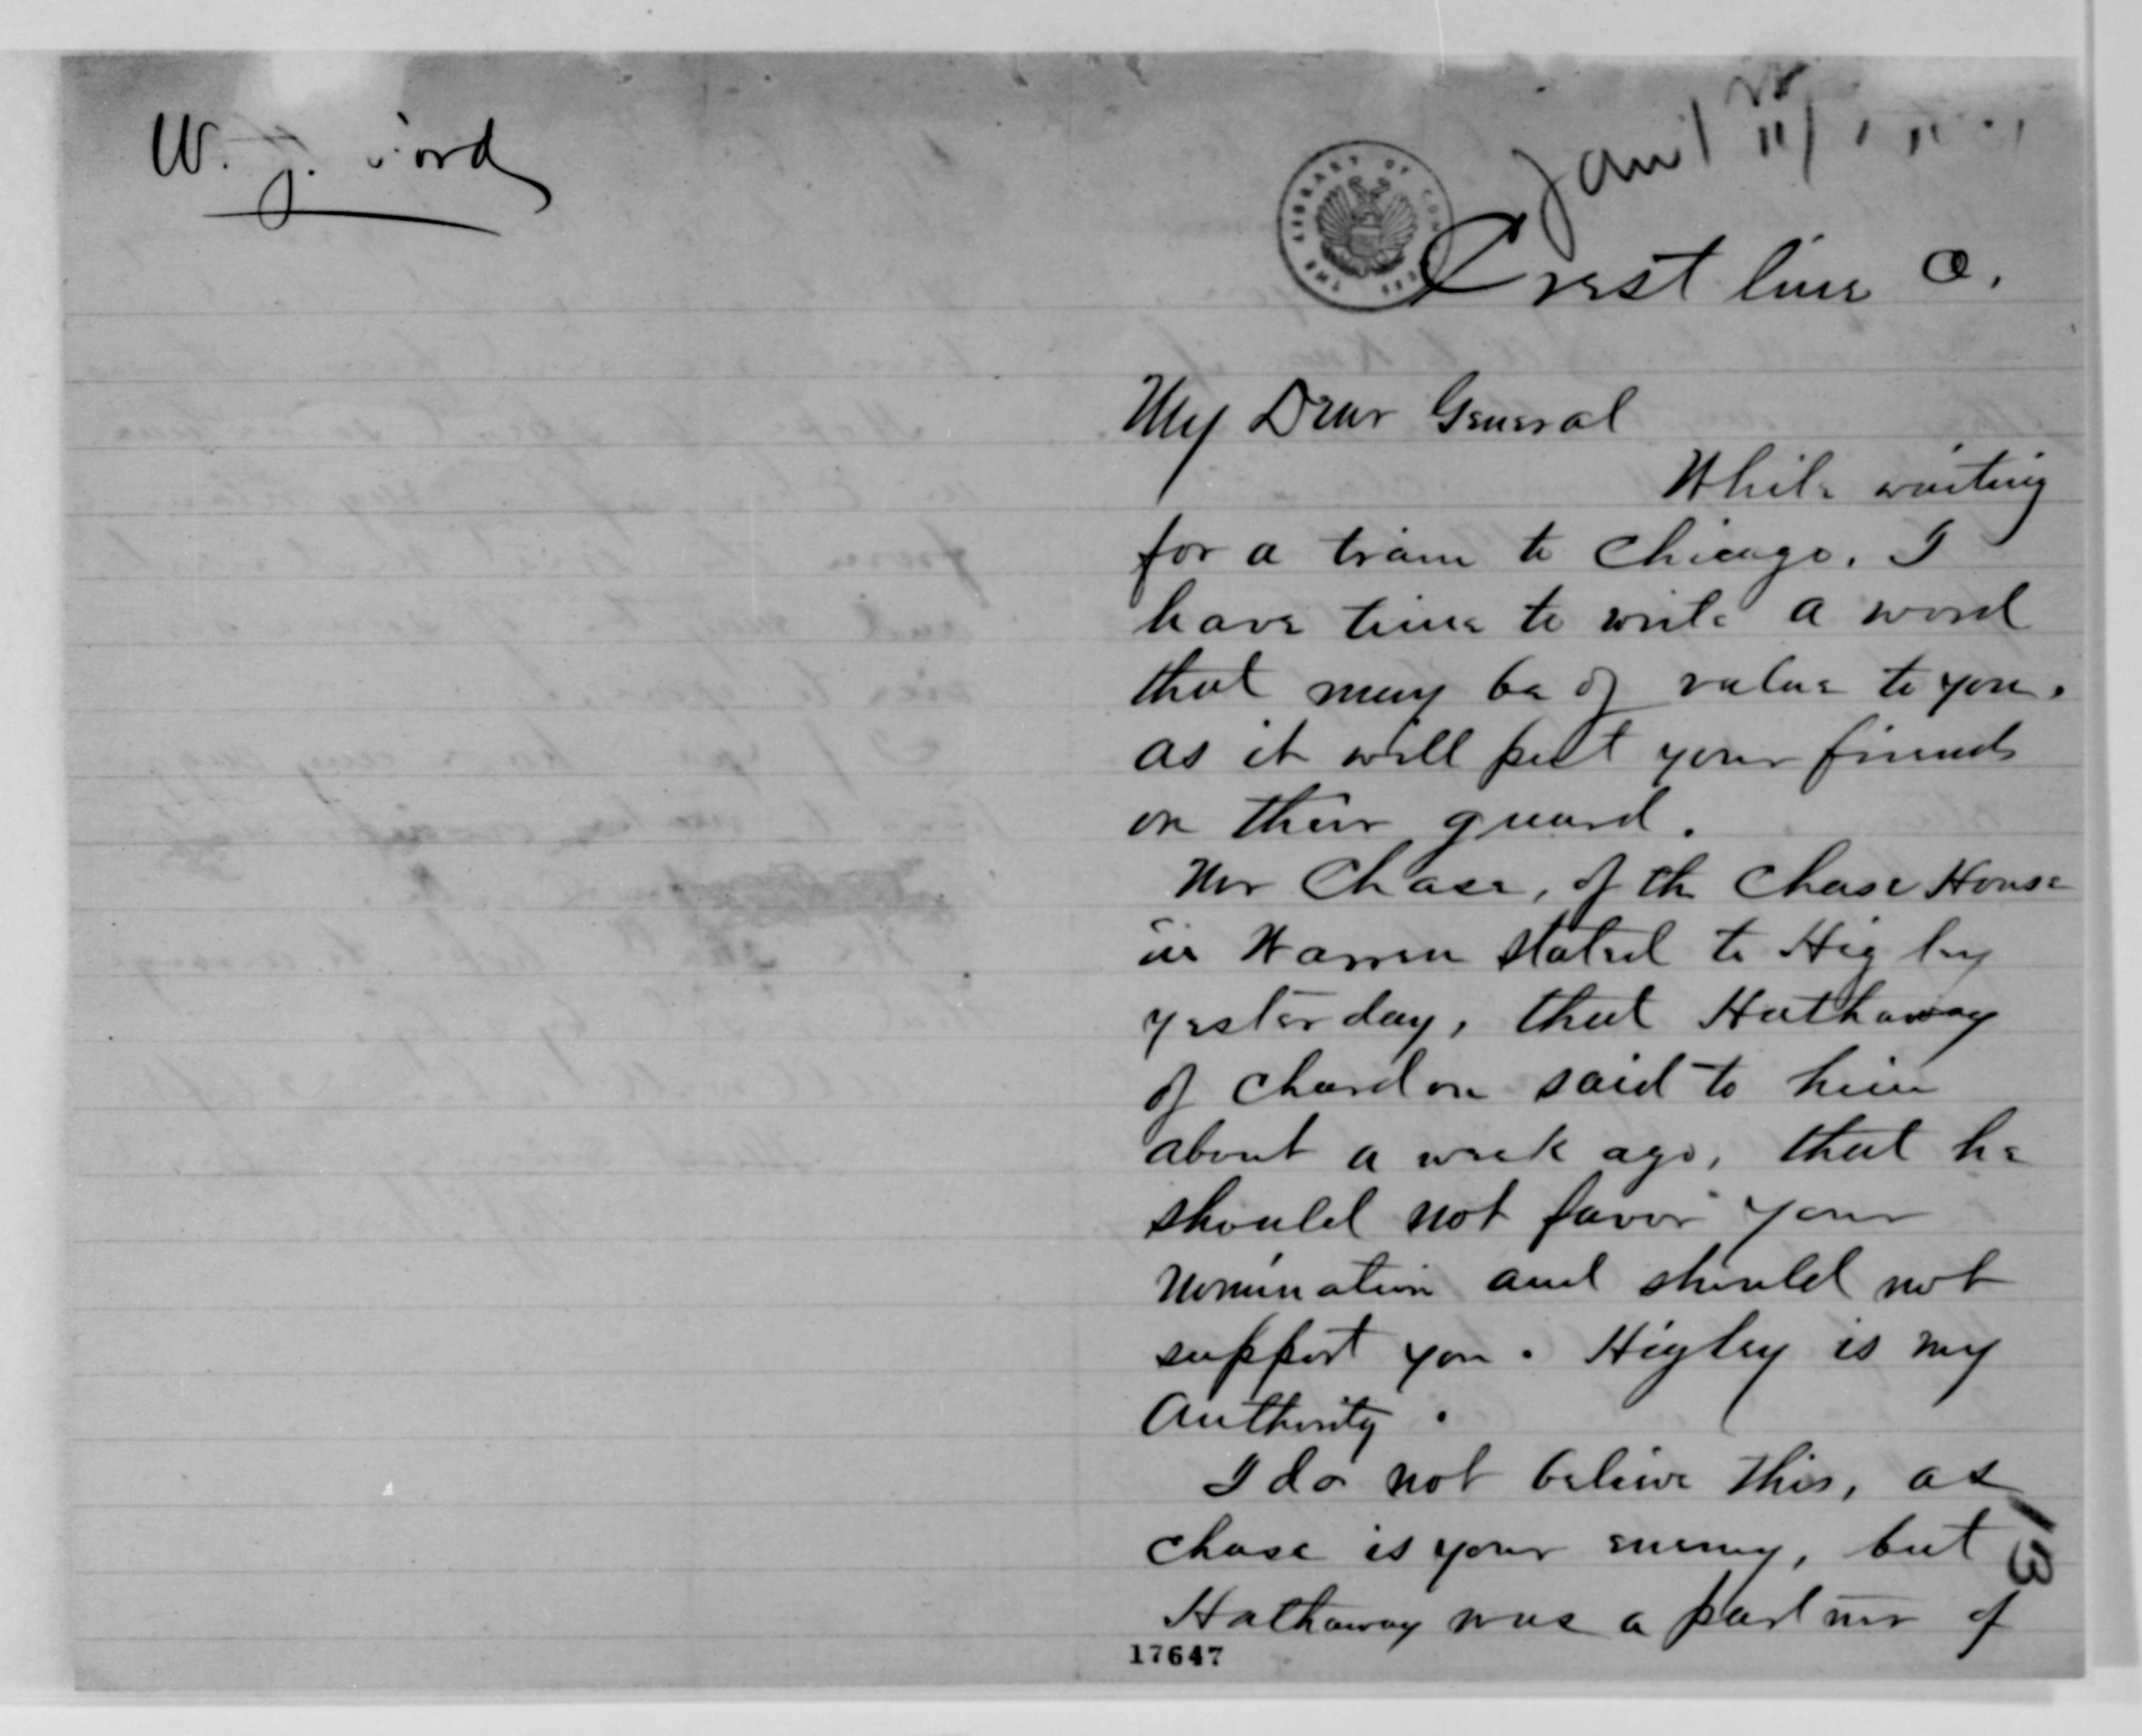 W. J. Ford
Jan 1
THE LIBRARY OF CONGRESS
Crestline O.
My Dear General
While waiting
for a train to Chicago, I
have time to write a word
that may be of value to you.
as it will put your friends
on their guard.
Mr Chase, of the Chase House
in Warren stated to Higley
yesterday, that Hathaway
of Chardon said to him
about a week ago, that he
should not favor your
nomination and should not
support you. Higley is my
Authority.
I do not believe this, as
Chase is your enemy, but
Hathaway was a partner of
13
17647